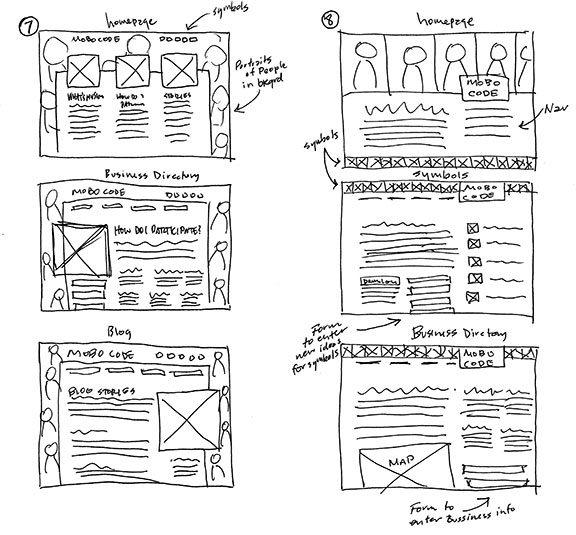 7
homepage
symbols
MOBO CODE
Portraits
of People
in bkgrd
How Do I
STORIES
Business Directory
MOBO CODE
HOW DO I PARTICIPATE?
Blog
MOBO CODE
BLOG STORIES
8
homepage
MOBO
CODE
Nav
symbols
symbols
MOBO
CODE
Form
to enter
new ideas
for symbols
Business Directory
MOBO
CODE
MAP
Form to
enter Bussiness info